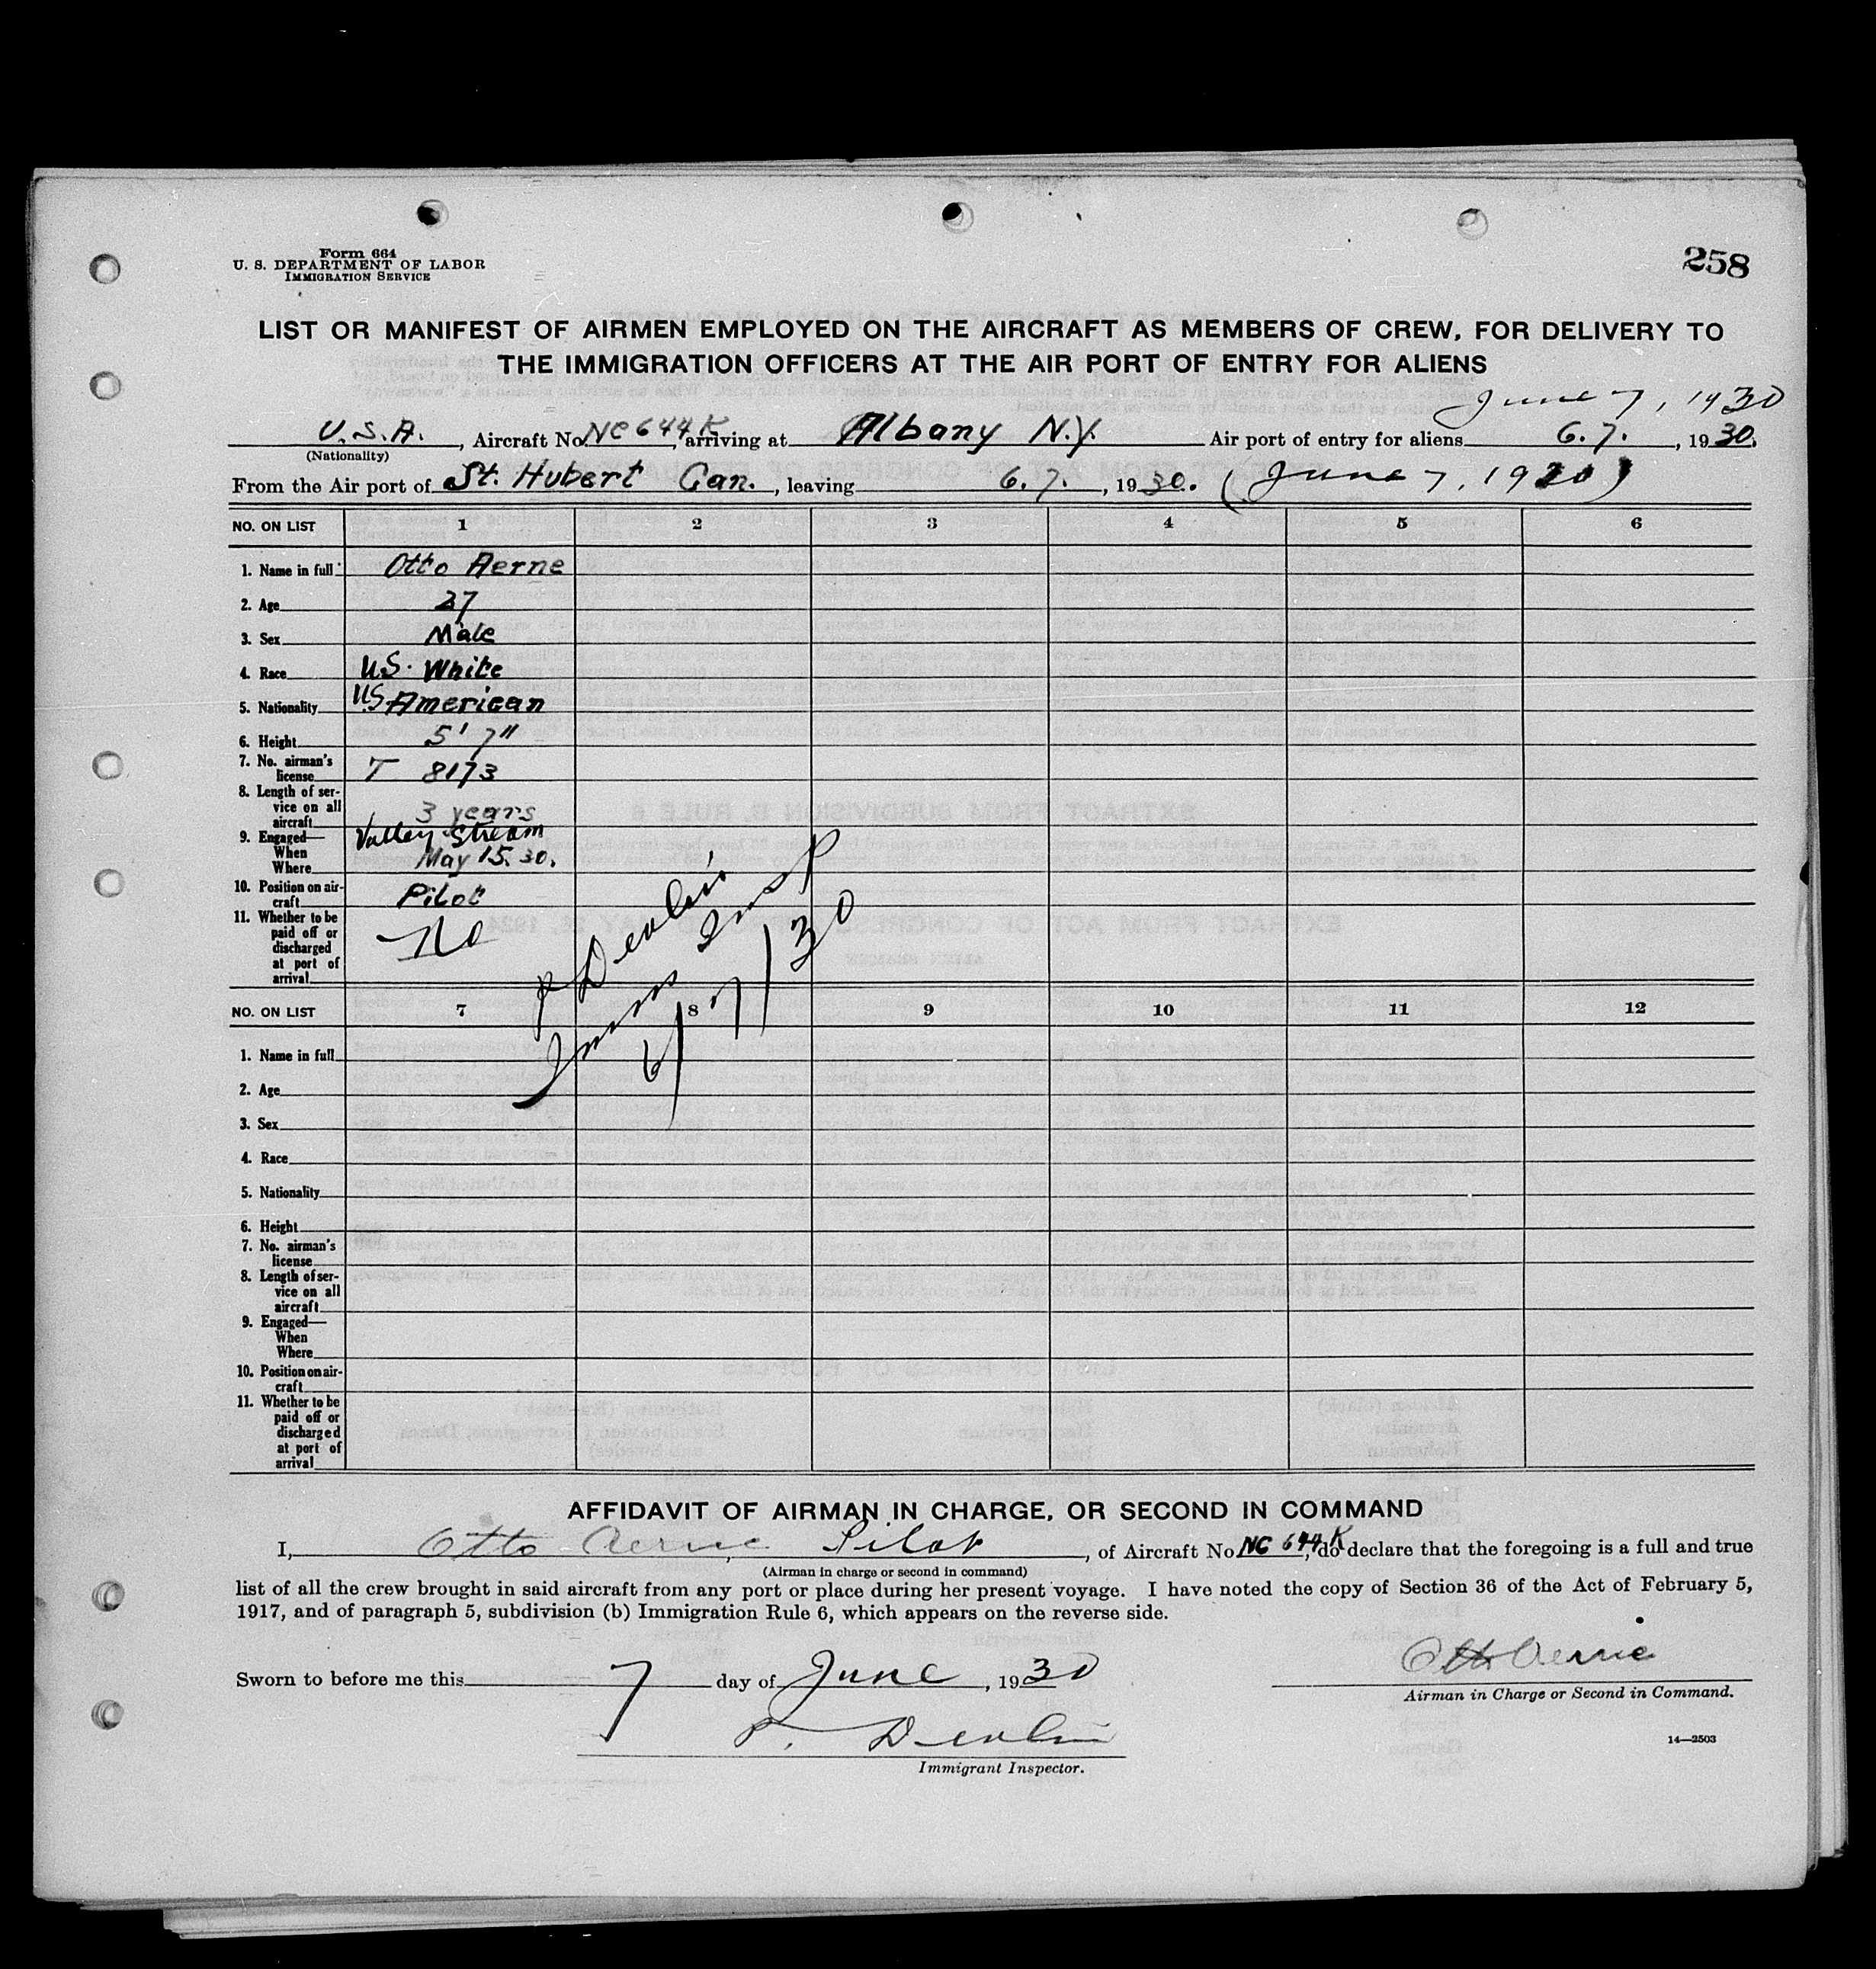 Form 664
U. S. DEPARTMENT OF LABOR
IMMIGRATION SERVICE
258
LIST OR MANIFEST OF AIRMEN EMPLOYED ON THE AIRCRAFT AS MEMBERS OF CREW, FOR DELIVERY TO
THE IMMIGRATION OFFICERS AT THE AIR PORT OF ENTRY FOR ALIENS
June 7, 1930
U.S.A., Aircraft No. NC644K, arriving at Albany N.Y. Air port of entry for aliens 6.7., 1930.
(Nationality)
From the Air port of St. Hubert Can., leaving 6.7., 1930. (June 7, 1930)
NO. ON LIST 1 2 3 4 5 6
1. Name in full Otto Aerne
2. Age 27
3. Sex Male
4. Race U.S. White
5. Nationality U.S American
6. Height 5' 7"
7. No. airman's
license T 8173
8. Length of ser-
vice on all
aircraft 3 years
9. Engaged— Valley Stream
When May 15. 30.
Where
10. Position on air-
craft Pilot
11. Whether to be
paid off or
discharged
at port of
arrival No
P Devlin
Imms Insp
6/7/30
NO. ON LIST 7 8 9 10 11 12
1. Name in full
2. Age
3. Sex
4. Race
5. Nationality
6. Height
7. No. airman's
license
8. Length of ser-
vice on all
aircraft
9. Engaged—
When
Where
10. Position on air-
craft
11. Whether to be
paid off or
discharged
at port of
arrival
AFFIDAVIT OF AIRMAN IN CHARGE, OR SECOND IN COMMAND
I, Otto Aerne, Pilot, of Aircraft No. NC 644K, do declare that the foregoing is a full and true
(Airman in charge or second in command)
list of all the crew brought in said aircraft from any port or place during her present voyage. I have noted the copy of Section 36 of the Act of February 5,
1917, and of paragraph 5, subdivision (b) Immigration Rule 6, which appears on the reverse side.
Otto Aerne
Sworn to before me this 7 day of June, 1930
Airman in Charge or Second in Command.
P. Devlin
14—2503
Immigrant Inspector.